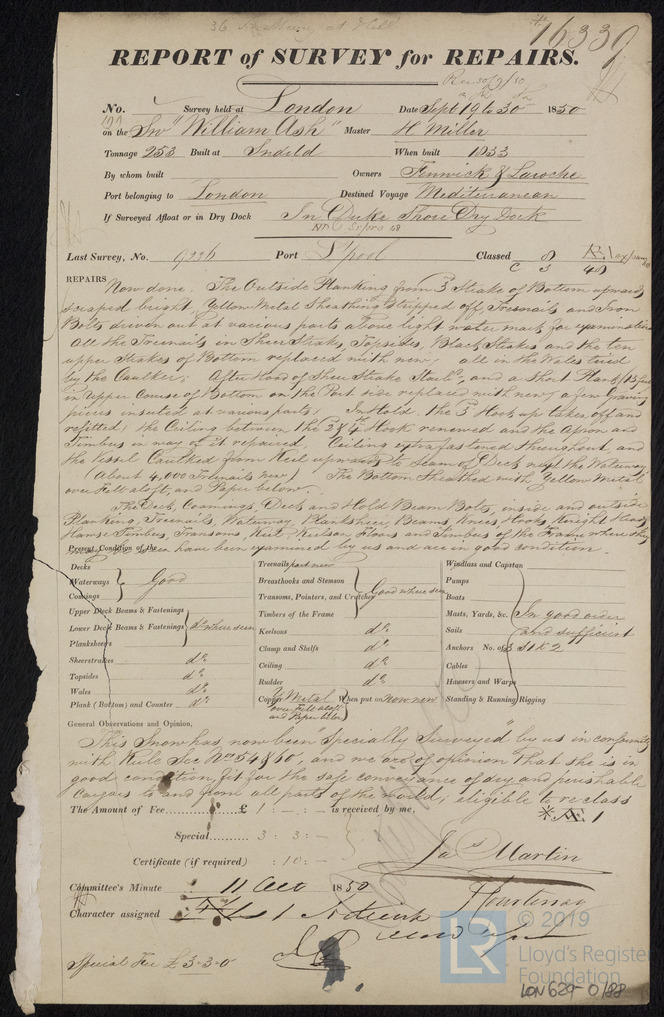 16339
REPORT of SURVEY for REPAIRS.
No. Survey held at London Date Sept 19 to 30 1850
on the Sw "William Ash" Master H Miller
Tonnage 253 Built at When built 1833
By whom built Owners Fenwick & Laroche
Port belonging to London Destined Voyage Mediteranean
If Surveyed Afloat or in Dry Dock In Duke Shore Dry Dock
Last Survey, No. 9236 Port L'pool Classed 8
REPAIRS Now done. The Outside Planking from 3 Strake of Bottom upwards
scraped bright, Yellow Metal Sheathing stripped off, Treenails and Iron
Bolts driven out at various parts above light water mark for examination
all the Treenails in Sheer Strake, Topsides, Black Strakes and the ten
upper Strakes of Bottom replaced with new, all in the Wales tried
by the Caulker; After Hood of Sheer Strake Starbd, and a short Plank (15 feet
in upper Course of Bottom on the Port side replaced with new, a few Graving
pieces inserted at various parts; In Hold, the 3 Hook up taken off and
refitted, the Ceiling between the 2 & 4 Hook renewed and the Apron and
Timbers in way of it repaired, Ceiling extra fastened throughout, and
the Vessel Caulked from Keel upwards to seam of Deck next the Waterway.
(About 4,000 Treenails new) The Bottom Sheathed with Yellow Metal
over Felt aloft, and Paper below.
The Deck, Coamings, Deck and Hold Beam Bolts, inside and outside
Planking, Treenails, Waterway, Planksheer, Beams, Knees, Hooks, Knight Heads,
Hawse Timbers, Transoms, Keel, Keelson, Floors and Timbers of the Frame where they
have been examined by us and are in good condition.
Present Condition of the
Decks
Waterways Good
Comings
Upper Deck Beams & Fastenings
Lower Deck Beams & Fastenings do where seen
Planksheers
Sheerstrakes do
Topsides do
Wales do
Plank (Bottom) and Counter do
Treenails part new
Breasthooks and Stemson
Transoms, Pointers, and Crutches Good where seen
Timbers of the Frame
Keelsons do
Clamp and Shelfs do
Ceiling do
Rudder do
Copper Y Metal over Felt aloft and Paper below When put on Now new
Windlass and Capstan
Pumps
Boats
Masts, Yards, &c. In good order
Sails and sufficient
Anchors No. of 3 St & 2
Cables
Hawsers and Warps
Standing & Running Rigging
General Observations and Opinion,
This Snow has now been "Specially Surveyed" by us in conformity
with Rule Sec Nos 54 & 60, and we are of opinion that she is in
good condition, fit for the safe conveyance of dry and perishable
Cargoes to and from all parts of the world; eligible to re class
The Amount of Fee £ 1 : - : - is received by me,
Special 3 : 3 : -
Certificate (if required) : 10 : - Jas Martin
Committee's Minute 11 Oct 1850 J Courtenay
Character assigned
Special Fee £3-3-0
© 2019
LR
Lloyd's Register
Foundation
LON 629-0188